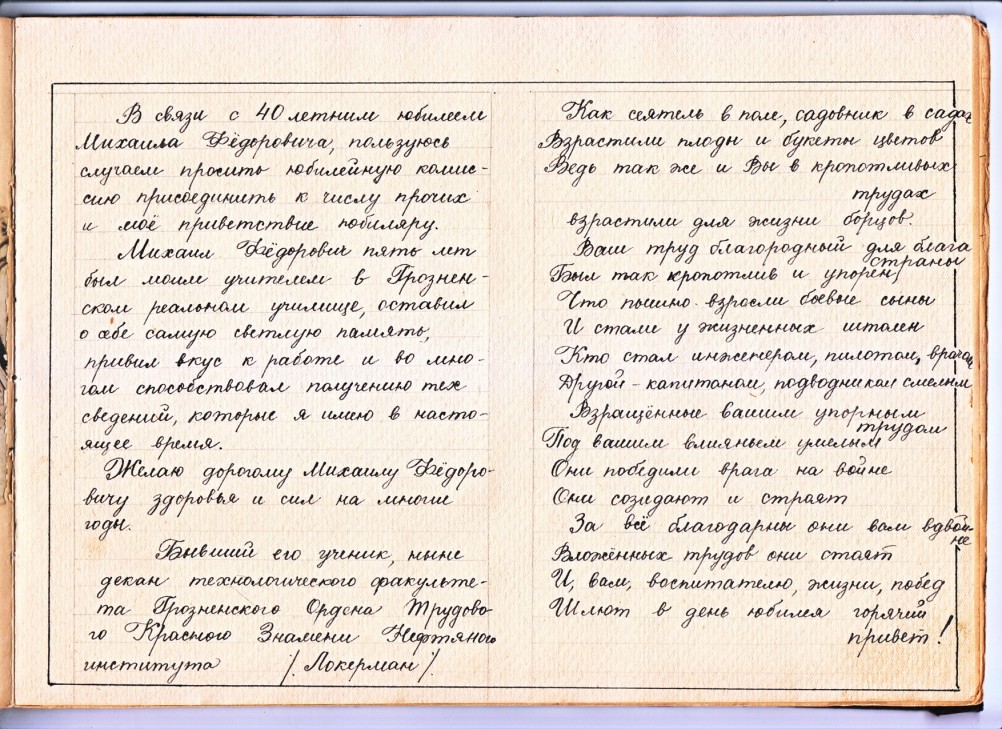 В связи с 40 летним юбилеем
Михаила Фёдоровича, пользуюсь
случаем просить юбилейную комис-
сию присоединить к числу прочих
и моё приветствие юбиляру.
Михаил Фёдорович пять лет
был моим учителем в Грознен-
ском реальном училище, оставил
о себе самую светлую память,
привил вкус к работе и во мно-
гом способствовал получению тех
сведений, которые я имею в насто-
ящее время.
Желаю дорогому Михаилу Фёдоро-
вичу здоровья и сил на многие
годы.
Бывший его ученик, ныне
декан технологического факульте-
та Грозненского Ордена Трудово-
го Красного Знамени Нефтяного
института /Локерман/.
Как сеятель в поле, садовник в садах
Взрастили плоды и букеты цветов
Ведь так же и Вы в кропотливых
трудах
взрастили для жизни борцов.
Ваш труд благородный для блага
страны
Был так кропотлив и упорен,
Что пышно взросли боевые сыны
И стали у жизненных штолен
Кто стал инженером, пилотом, врачом
Другой - капитаном, подводником смелым
Взращённые вашим упорным
трудом
Под вашим влияньем умелым
Они победили врага на войне
Они созидают и страят
За всё благодарны они вам вдвой-
не
Вложённых трудов они стаят
И, вам, воспитателю, жизни, побед
Шлют в день юбилея горячий
привет!